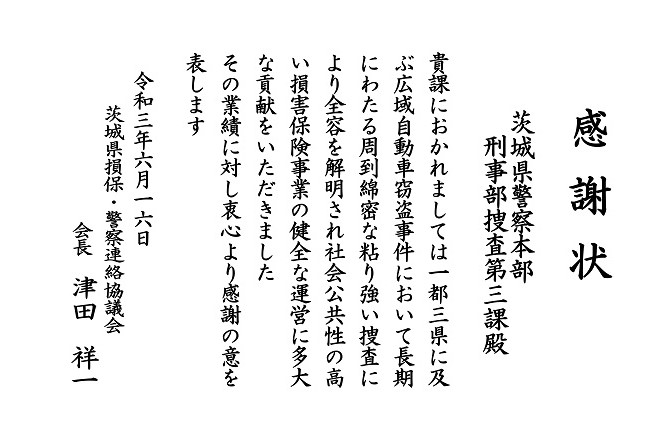 感謝状
茨城県警察本部
刑事部捜査第三課殿
貴課におかれましては一都三県に及
ぶ広域自動車窃盗事件において長期
にわたる周到綿密な粘り強い捜査に
より全容を解明され社会公共性の高
い損害保険事業の健全な運営に多大
な貢献をいただきました
その業績に対し衷心より感謝の意を
表します
令和三年六月一六日
茨城県損保・警察連絡協議会
会長 津田 祥一